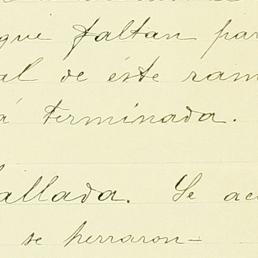 que faltan par
al de éste ram
á terminada.
allada. Se ac
se herraron=